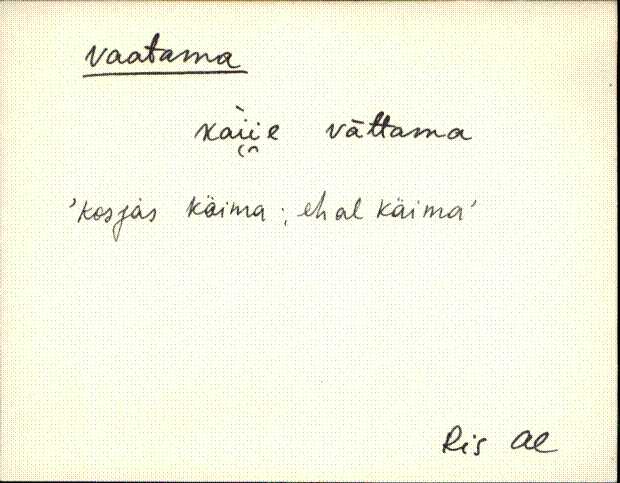 vaatama
kàii̭e vāttama
'kosjas käima; ehal käima'
Ris Al